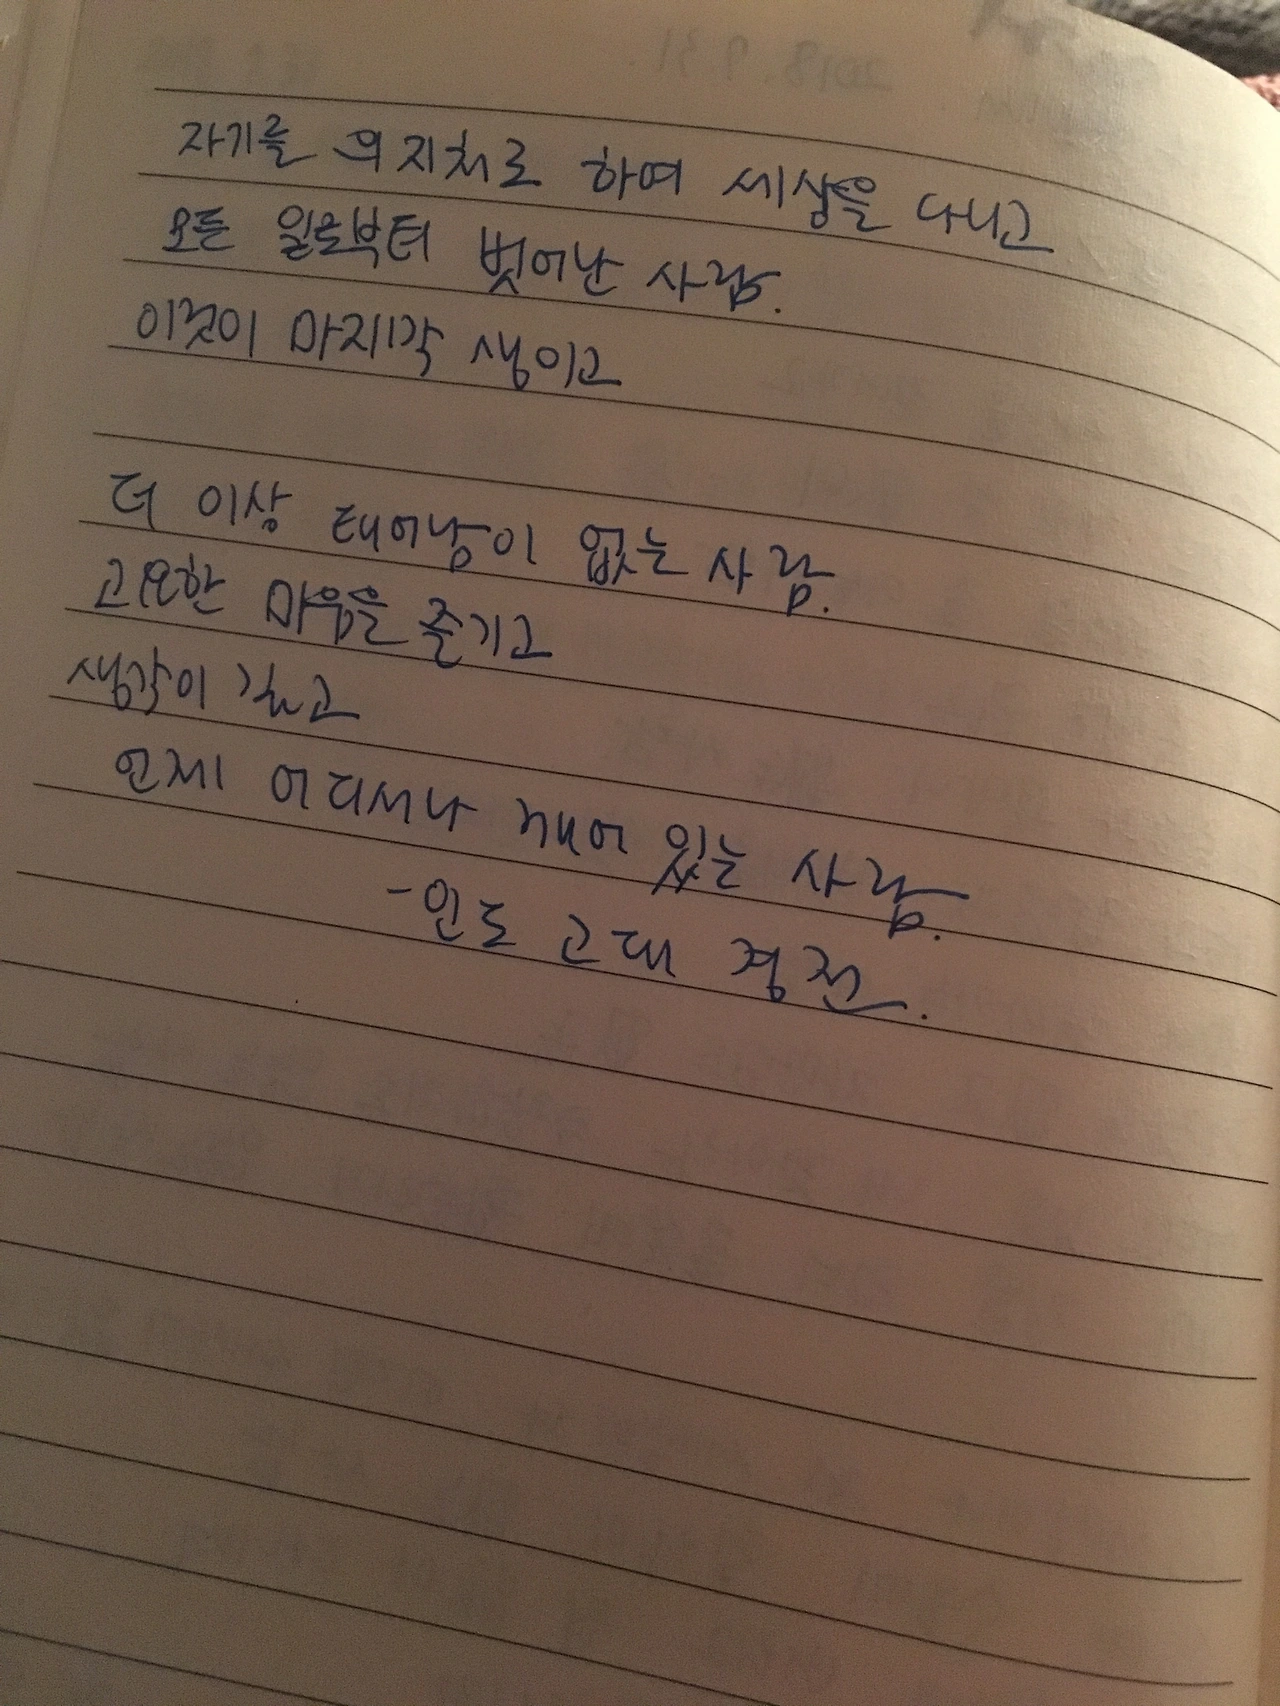 자기를 의지처로 하여 세상을 다니고
모든 일로부터 벗어난 사람.
이것이 마지막 생이고
더 이상 태어남이 없는 사람.
고요한 마음을 즐기고
생각이 깊고
언제 어디서나 깨어 있는 사람.
-인도 고대 경전.